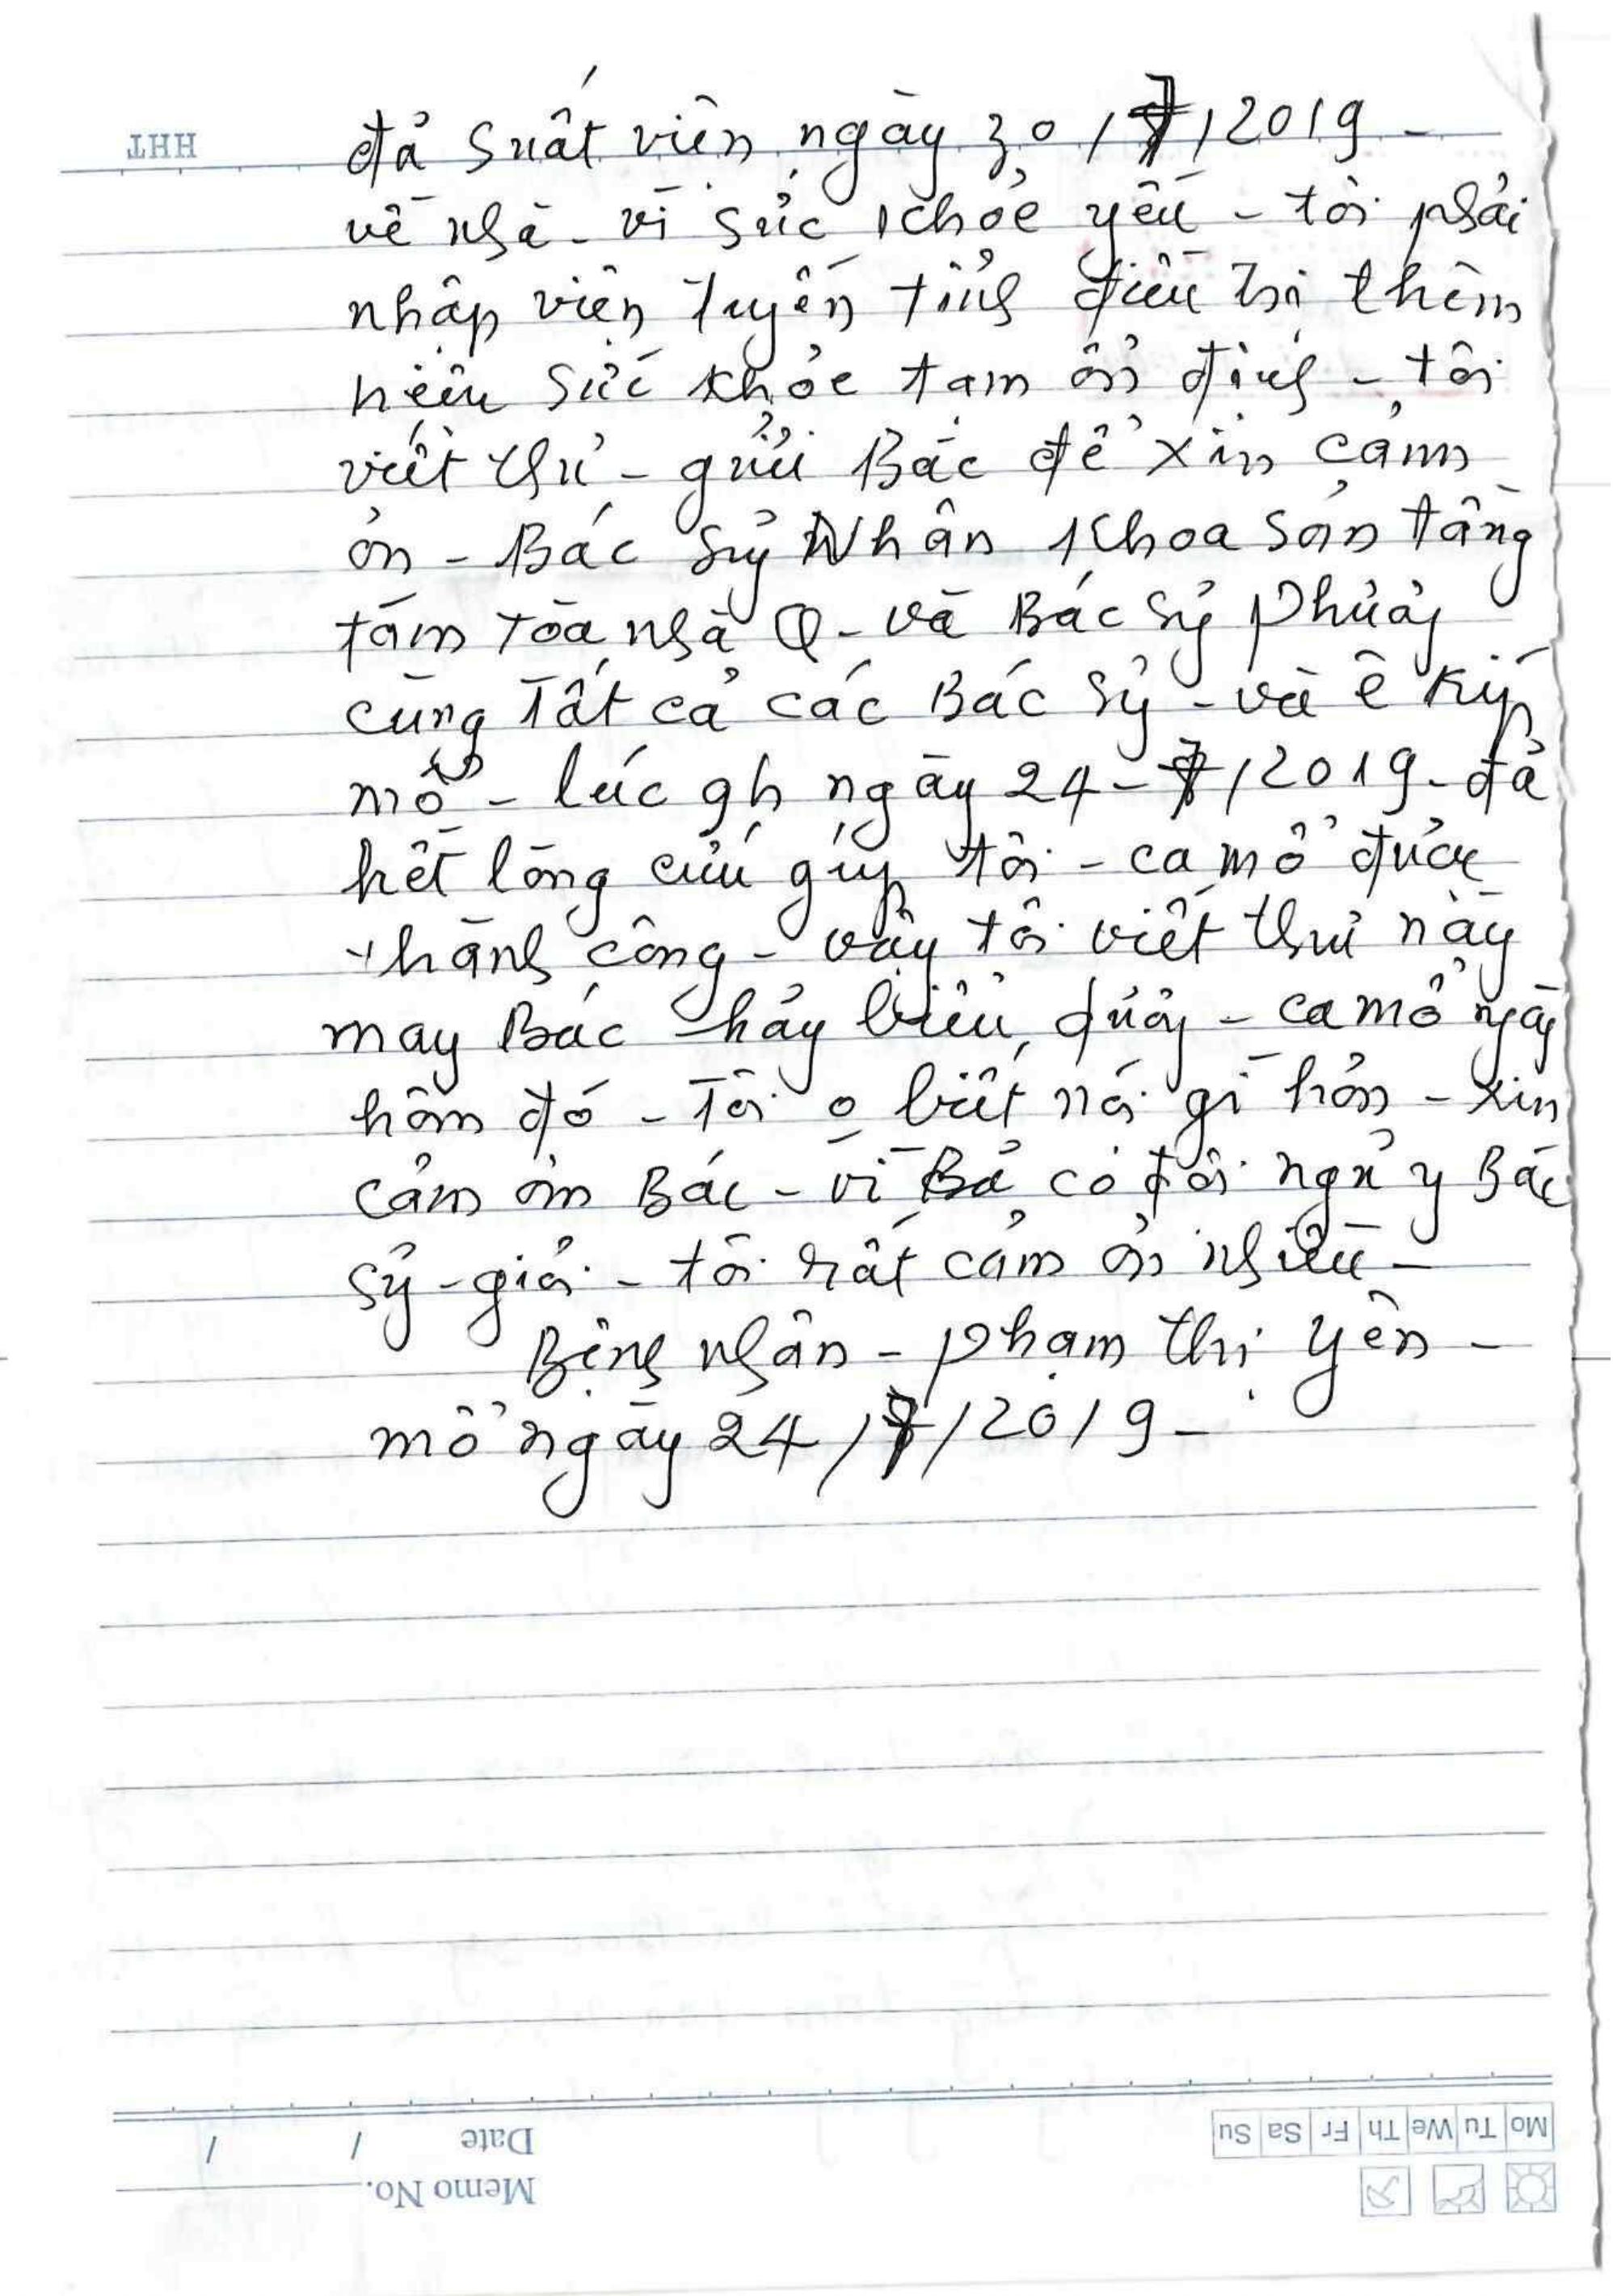 HHT
đả suất viên ngày 30/7/2019 -
về nhà - vì sức khỏe yếu - tôi phải
nhập viện tuyến tỉnh điều trị thêm
hiện sức khỏe tạm ổn định - tôi
viết thư - gửi Bác để xin cảm
ơn - Bác sỹ Nhân khoa sản tầng
tám tòa nhà Q - và Bác sỹ Phượng
cùng Tất cả các Bác sỹ - và ê kíp
mổ - lúc 9h ngày 24 - 7/2019 - đả
hết lòng cứu giúp tôi - ca mổ được
thành công - vậy tôi viết thư này
may Bác hảy biểu dương - ca mổ ngày
hôm đó - Tôi o biết nói gì hơn - xin
cảm ơn Bác - vì có đội ngủ y Bác
sỹ - giỏi - tôi rất cảm ơn nhiều -
Bệnh nhân - Phạm Thị Yên -
mổ ngày 24/7/2019 -
Mo Tu We Th Fr Sa Su
Memo No.
Date / /